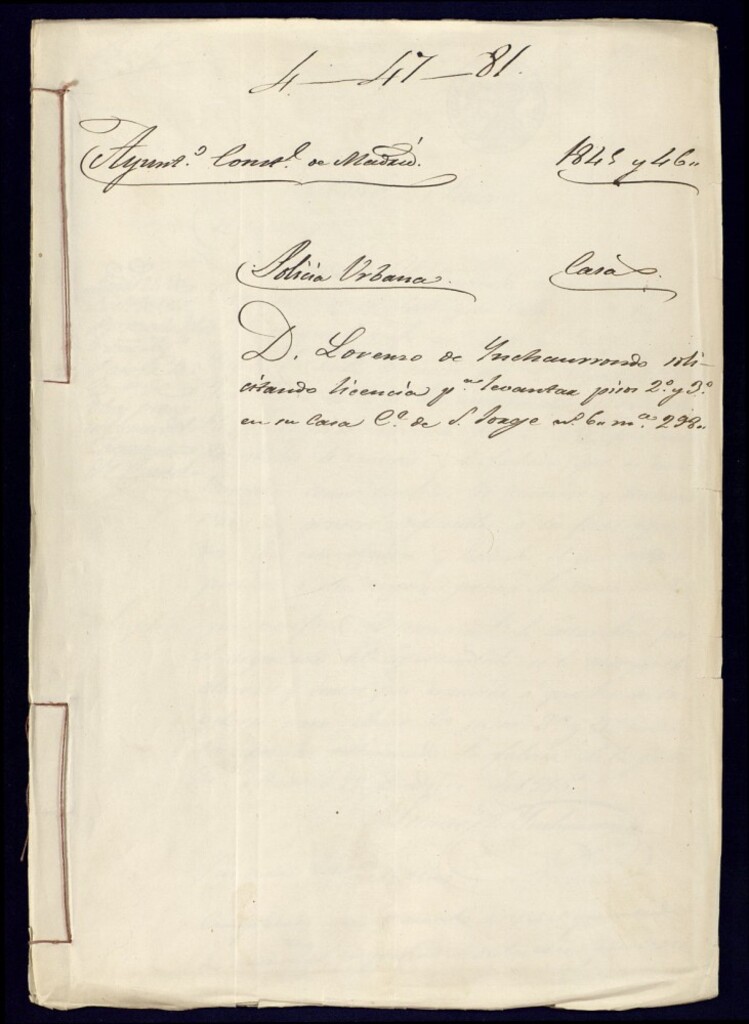 4-47-81.
Ayunt.º Const.l de Madrid. 1845 y 46„
Policia Urbana. Casas.
D. Lorenzo de Inchaurrondo soli-
citando licencia p.ª levantar pisos 2.º y 3.º
en su casa C.e de S. Jorge n.º 6„ m.ª 298„